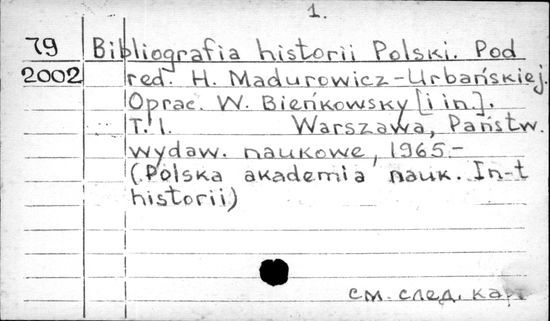 1.
79 Bibliografia historii Polski. Pod
2002 red. H. Madurowicz-Urbańskiej.
Oprac. W. Bieńkowsky [i in.].
T. 1. Warszawa, Państw.
wydaw. naukowe, 1965.-
(Polska akademia nauk. In-t
historii)
см. след. карт